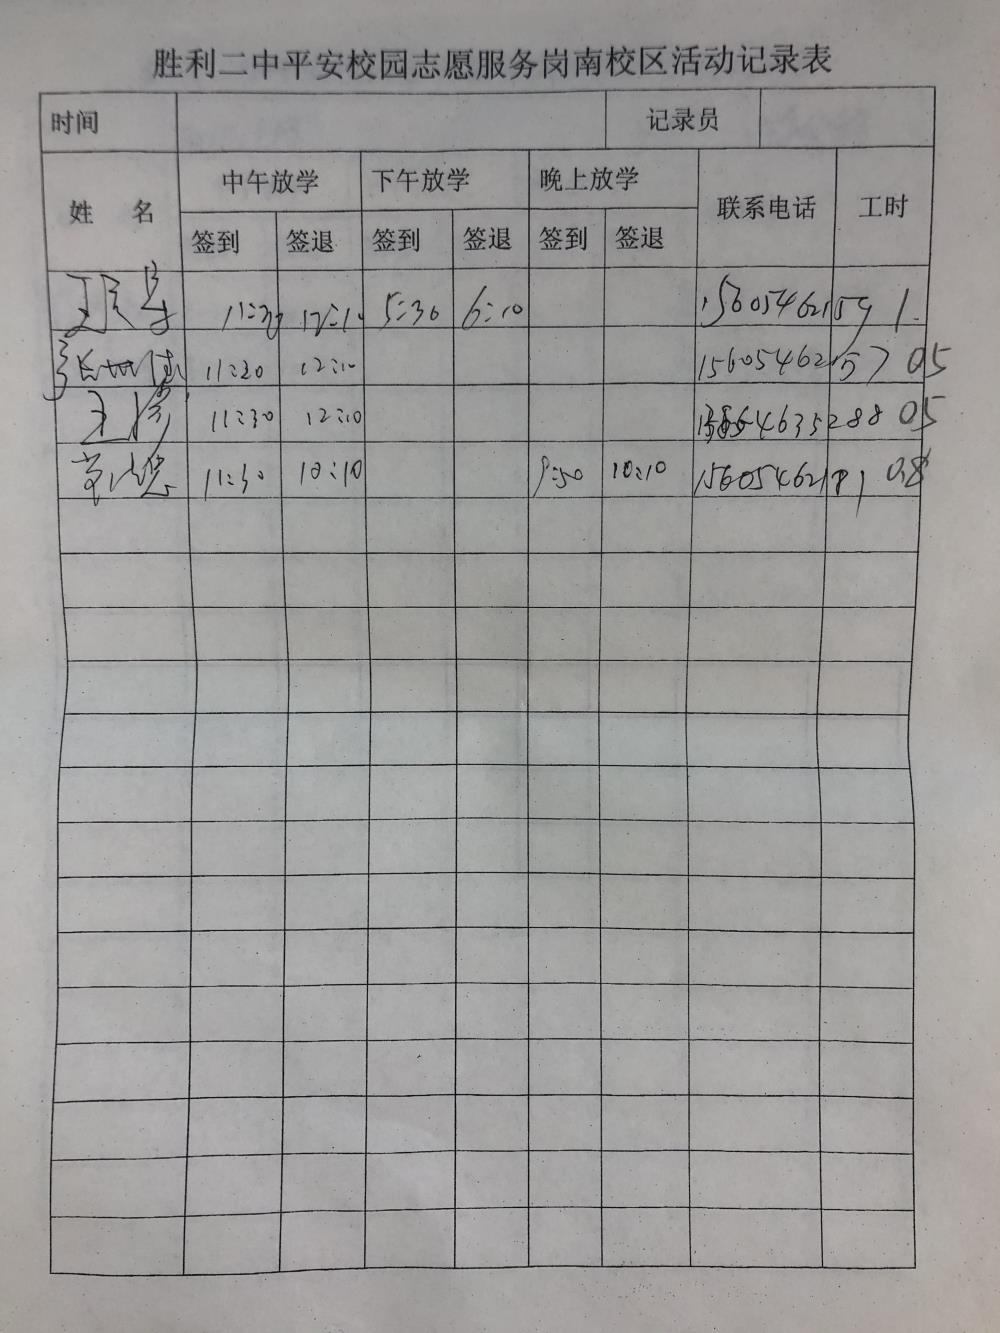 胜利二中平安校园志愿服务岗南校区活动记录表
时间 记录员
姓 名 中午放学 下午放学 晚上放学 联系电话 工时
签到 签退 签到 签退 签到 签退
11:30 12:10 5:30 6:10 15605462159 1
11:30 12:10 15605462157 05
王 11:30 12:10 4635288 05
11:30 10:10 9:50 10:10 15605462191 0.8